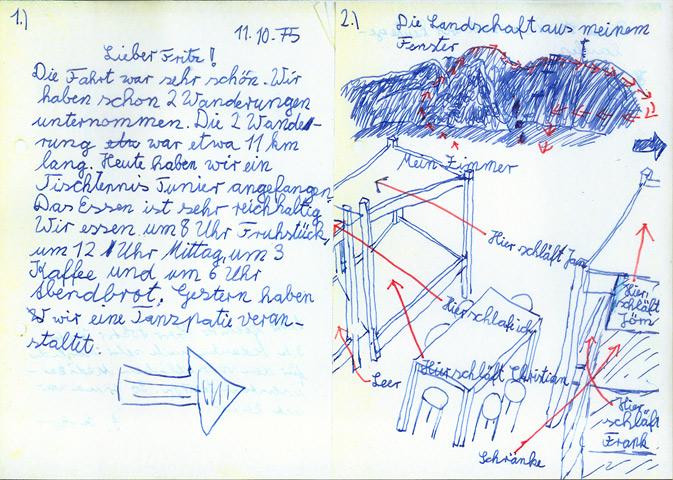 1.)
11.10.75
Lieber Fritz!
Die Fahrt war sehr schön. Wir
haben schon 2 Wanderungen
unternommen. Die 2 Wande-
rung etw war etwa 11 km
lang. Heute haben wir ein
Tischtennis Tunier angefangen.
Das Essen ist sehr reichhaltig
Wir essen um 8 Uhr Fruhstück,
um 12 Uhr Mittag, um 3
Kaffee und um 6 Uhr
Abendbrot. Gestern haben
wir eine Tanzpatie veran-
staltet.
2.)
Die Landschaft aus meinem
Fenster
Mein Zimmer
Hier schläft Jan
Hier schlafe ich
Hier
schläft
Jörn
Leer
Hier schläft Christian
Hier
schläft
Frank
Schränke